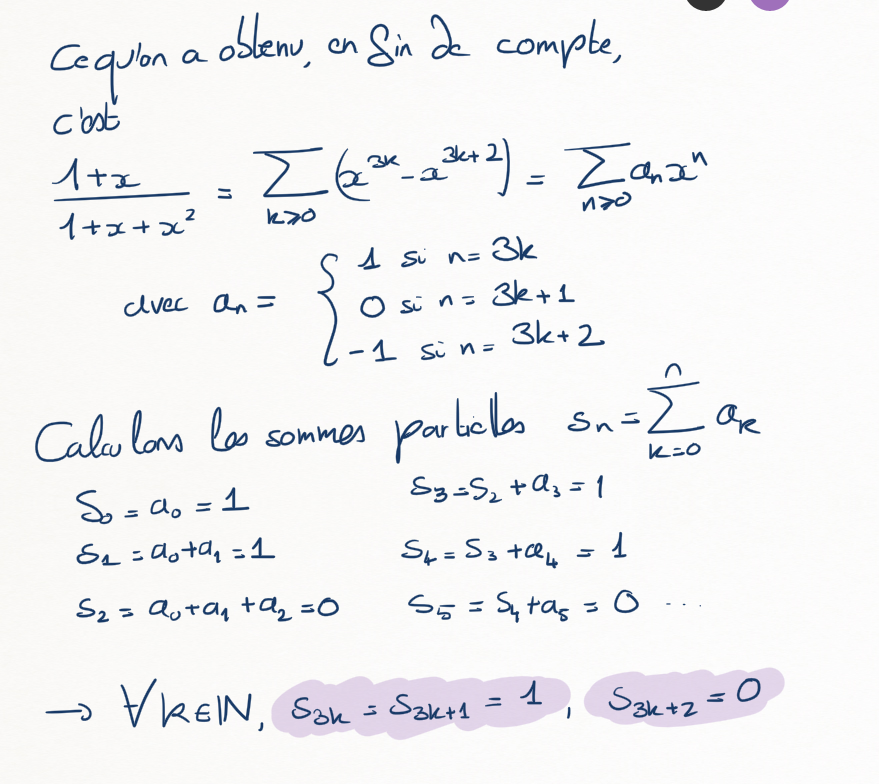 Ce qu'on a obtenu, en fin de compte,
c'est
(1+x)/(1+x+x²) = ∑_{k≥0} (x^{3k} - x^{3k+2}) = ∑_{n≥0} a_n x^n
avec a_n = { 1 si n = 3k
0 si n = 3k+1
-1 si n = 3k+2
Calculons les sommes partielles s_n = ∑_{k=0}^{n} a_k
S_0 = a_0 = 1 S_3 = S_2 + a_3 = 1
S_1 = a_0 + a_1 = 1 S_4 = S_3 + a_4 = 1
S_2 = a_0 + a_1 + a_2 = 0 S_5 = S_4 + a_5 = 0 ...
→ ∀k∈ℕ, S_{3k} = S_{3k+1} = 1, S_{3k+2} = 0